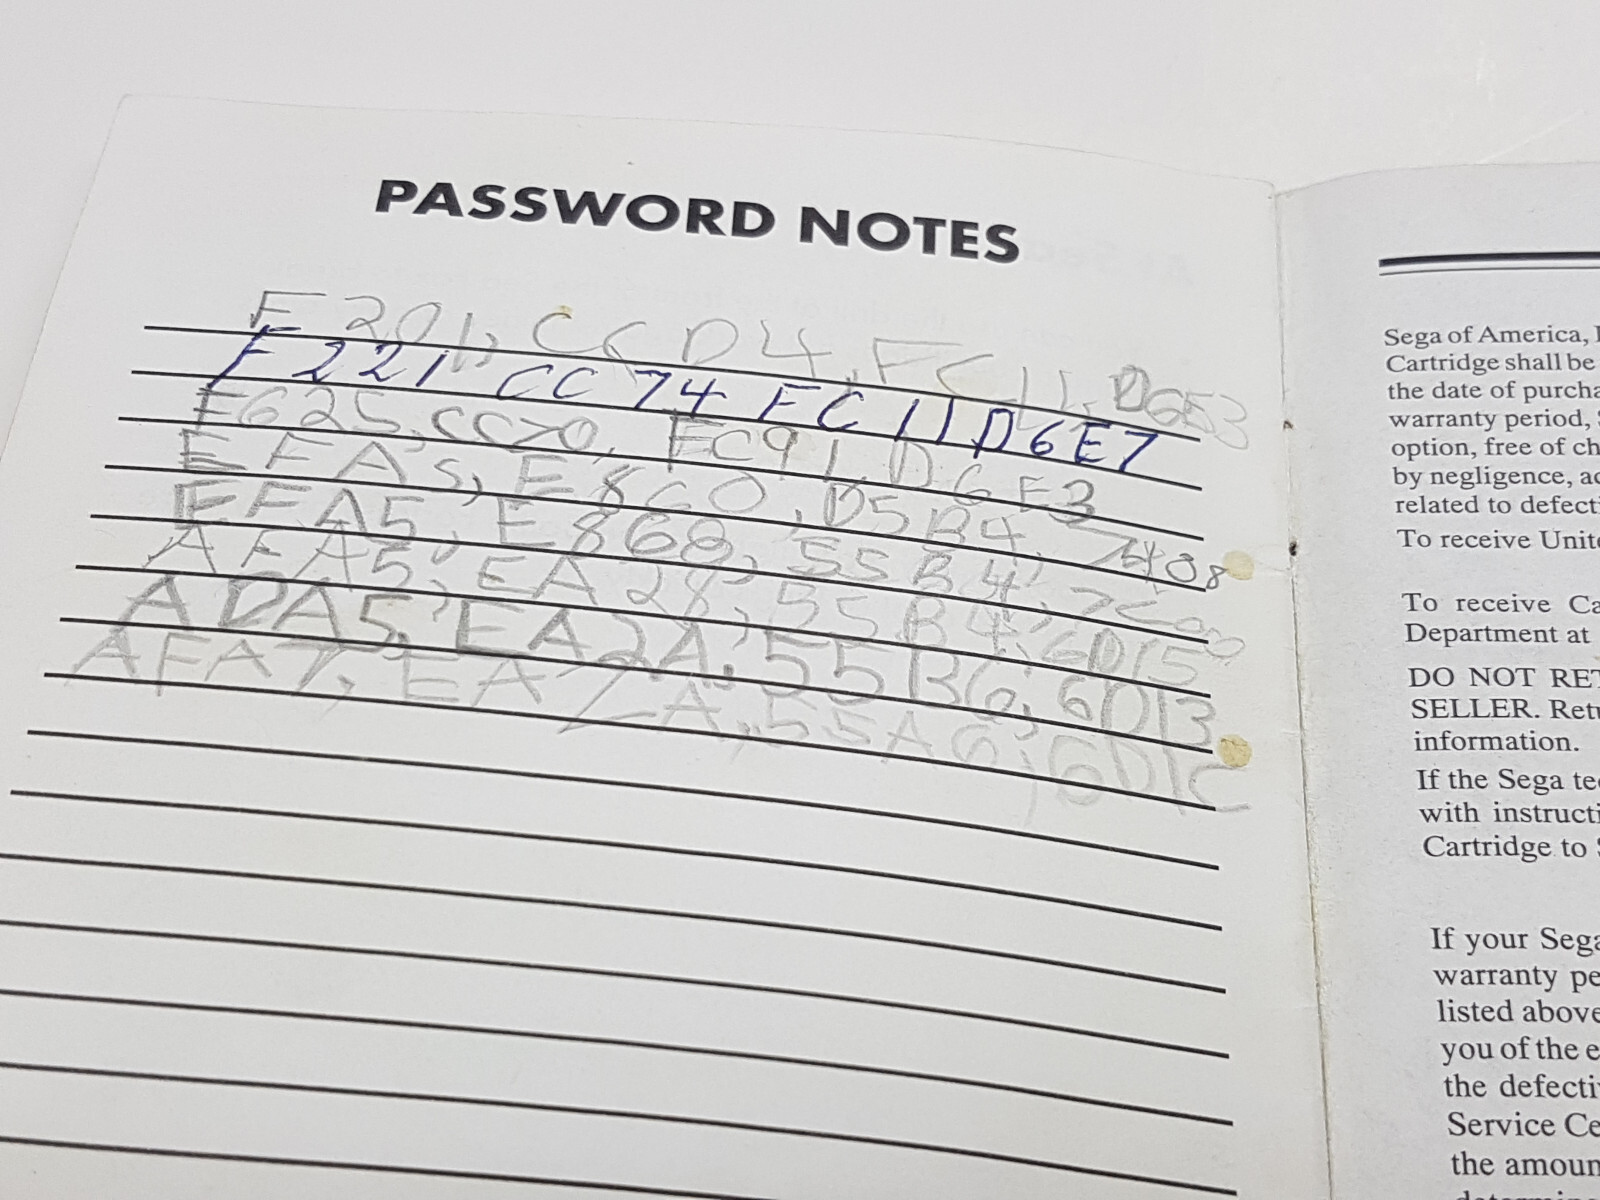 PASSWORD NOTES
F201, CCD4, FC11, D6E3
F221 CC74 FC11 D6E7
F625, CC70, FC91, D6E3
EFA5, E860, D5B4, 7408
FFA5, E868, 55B4, 7C00
AFA5, EA28, 55B4, 6D15
ADA5, EA2A, 55B6, 6D13
AFA7, EA7A, 55A6, 6D1C
Sega of America, I
Cartridge shall be
the date of purcha
warranty period, S
option, free of ch
by negligence, ac
related to defecti
To receive Unite
To receive Ca
Department at
DO NOT RET
SELLER. Retu
information.
If the Sega tec
with instructi
Cartridge to S
If your Sega
warranty pe
listed above
you of the e
the defectiv
Service Ce
the amoun